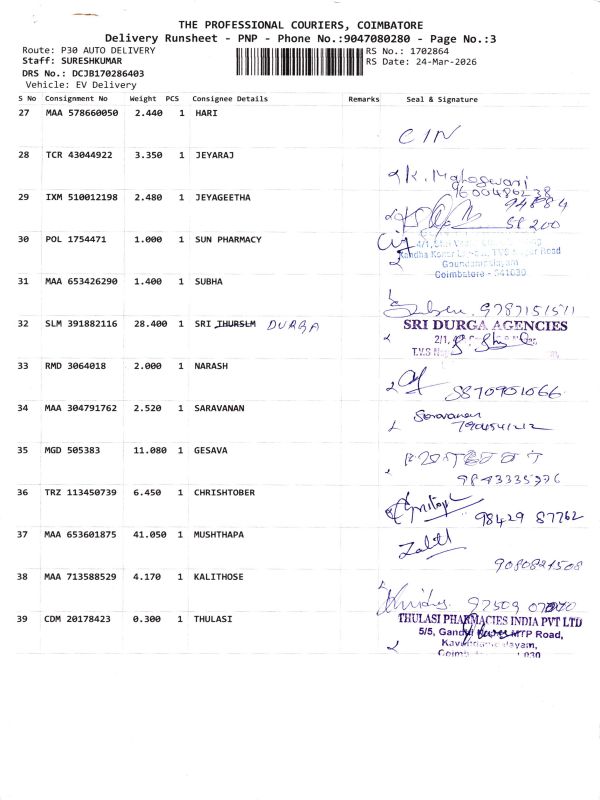 THE PROFESSIONAL COURIERS, COIMBATORE
Delivery Runsheet - PNP - Phone No.:9047080280 - Page No.:3
Route: P30 AUTO DELIVERY
RS No.: 1702864
Staff: SURESHKUMAR
RS Date: 24-Mar-2026
DRS No.: DCJB170286403
Vehicle: EV Delivery
S No Consignment No Weight PCS Consignee Details Remarks Seal & Signature
27 MAA 578660050 2.440 1 HARI
CIN
28 TCR 43044922 3.350 1 JEYARAJ
K. Maheswari
9600486238
29 IXM 510012198 2.480 1 JEYAGEETHA
94884
58200
30 POL 1754471 1.000 1 SUN PHARMACY
Goundampalayam
Coimbatore - 641030
31 MAA 653426290 1.400 1 SUBHA
9787151511
32 SLM 391882116 28.400 1 SRI THURSLM DURGA
SRI DURGA AGENCIES
2/1,
T.V.S
33 RMD 3064018 2.000 1 NARASH
34 MAA 304791762 2.520 1 SARAVANAN
Saravanan
35 MGD 505383 11.080 1 GESAVA
36 TRZ 113450739 6.450 1 CHRISHTOBER
98429 87762
37 MAA 653601875 41.050 1 MUSHTHAPA
9080821508
38 MAA 713588529 4.170 1 KALITHOSE
97509
39 CDM 20178423 0.300 1 THULASI
THULASI PHARMACIES INDIA PVT LTD
5/5, Gandhi MTP Road,